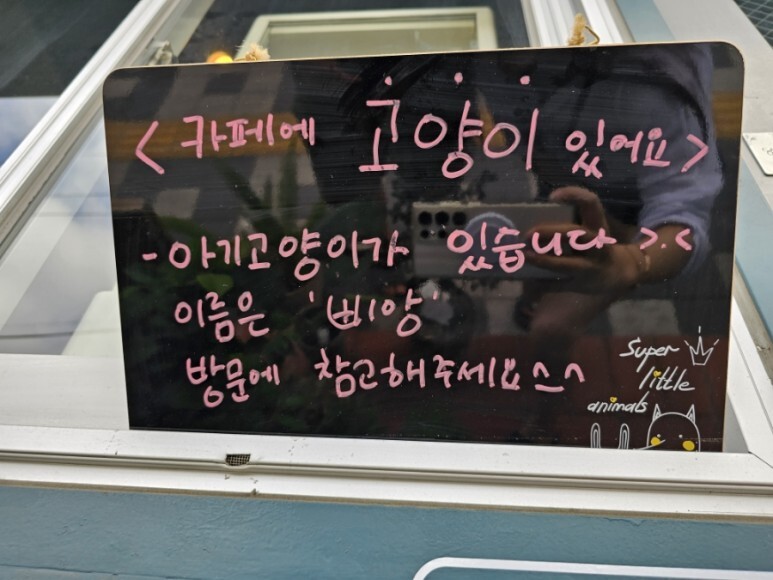 < 카페에 고양이 있어요 >
- 아기고양이가 있습니다 >.<
이름은 '삐양'
방문에 참고해주세요^^
Super
little
animals